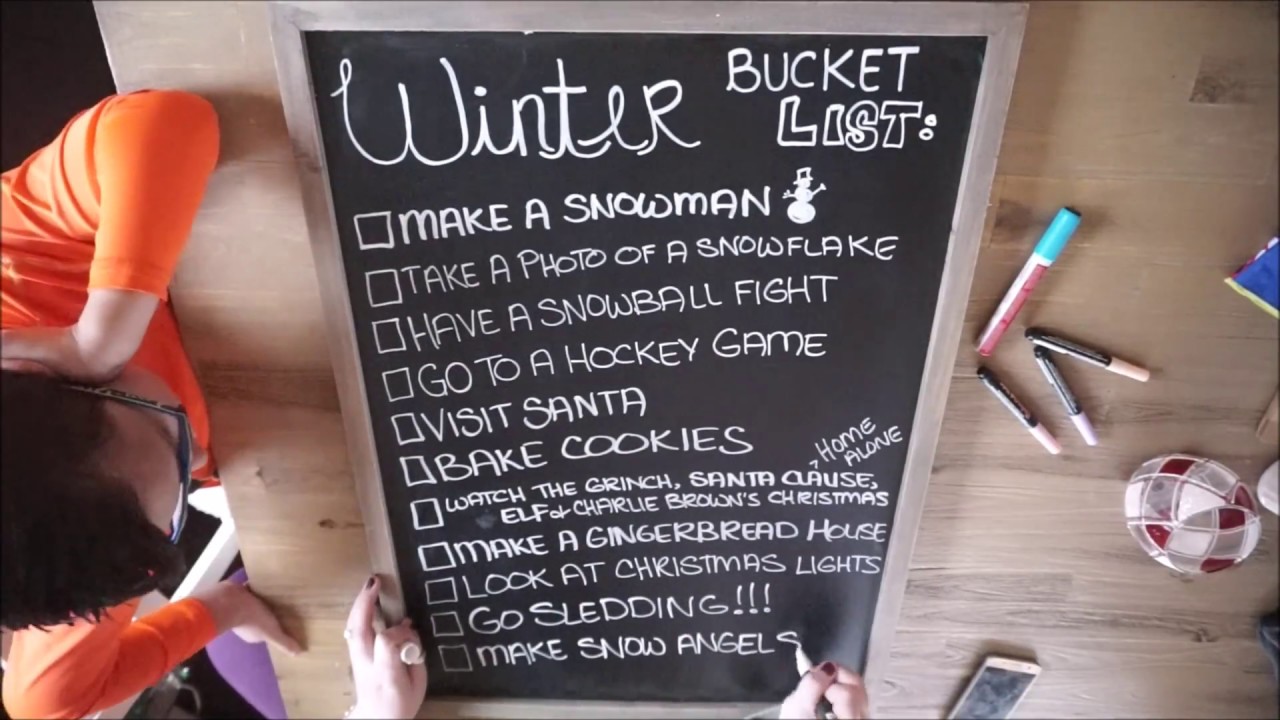 Winter BUCKET
LIST:
MAKE A SNOWMAN
TAKE A PHOTO OF A SNOWFLAKE
HAVE A SNOWBALL FIGHT
GO TO A HOCKEY GAME
VISIT SANTA
BAKE COOKIES
HOME
ALONE
WATCH THE GRINCH, SANTA CLAUSE,
ELF & CHARLIE BROWN'S CHRISTMAS
MAKE A GINGERBREAD HOUSE
LOOK AT CHRISTMAS LIGHTS
GO SLEDDING!!!
MAKE SNOW ANGELS